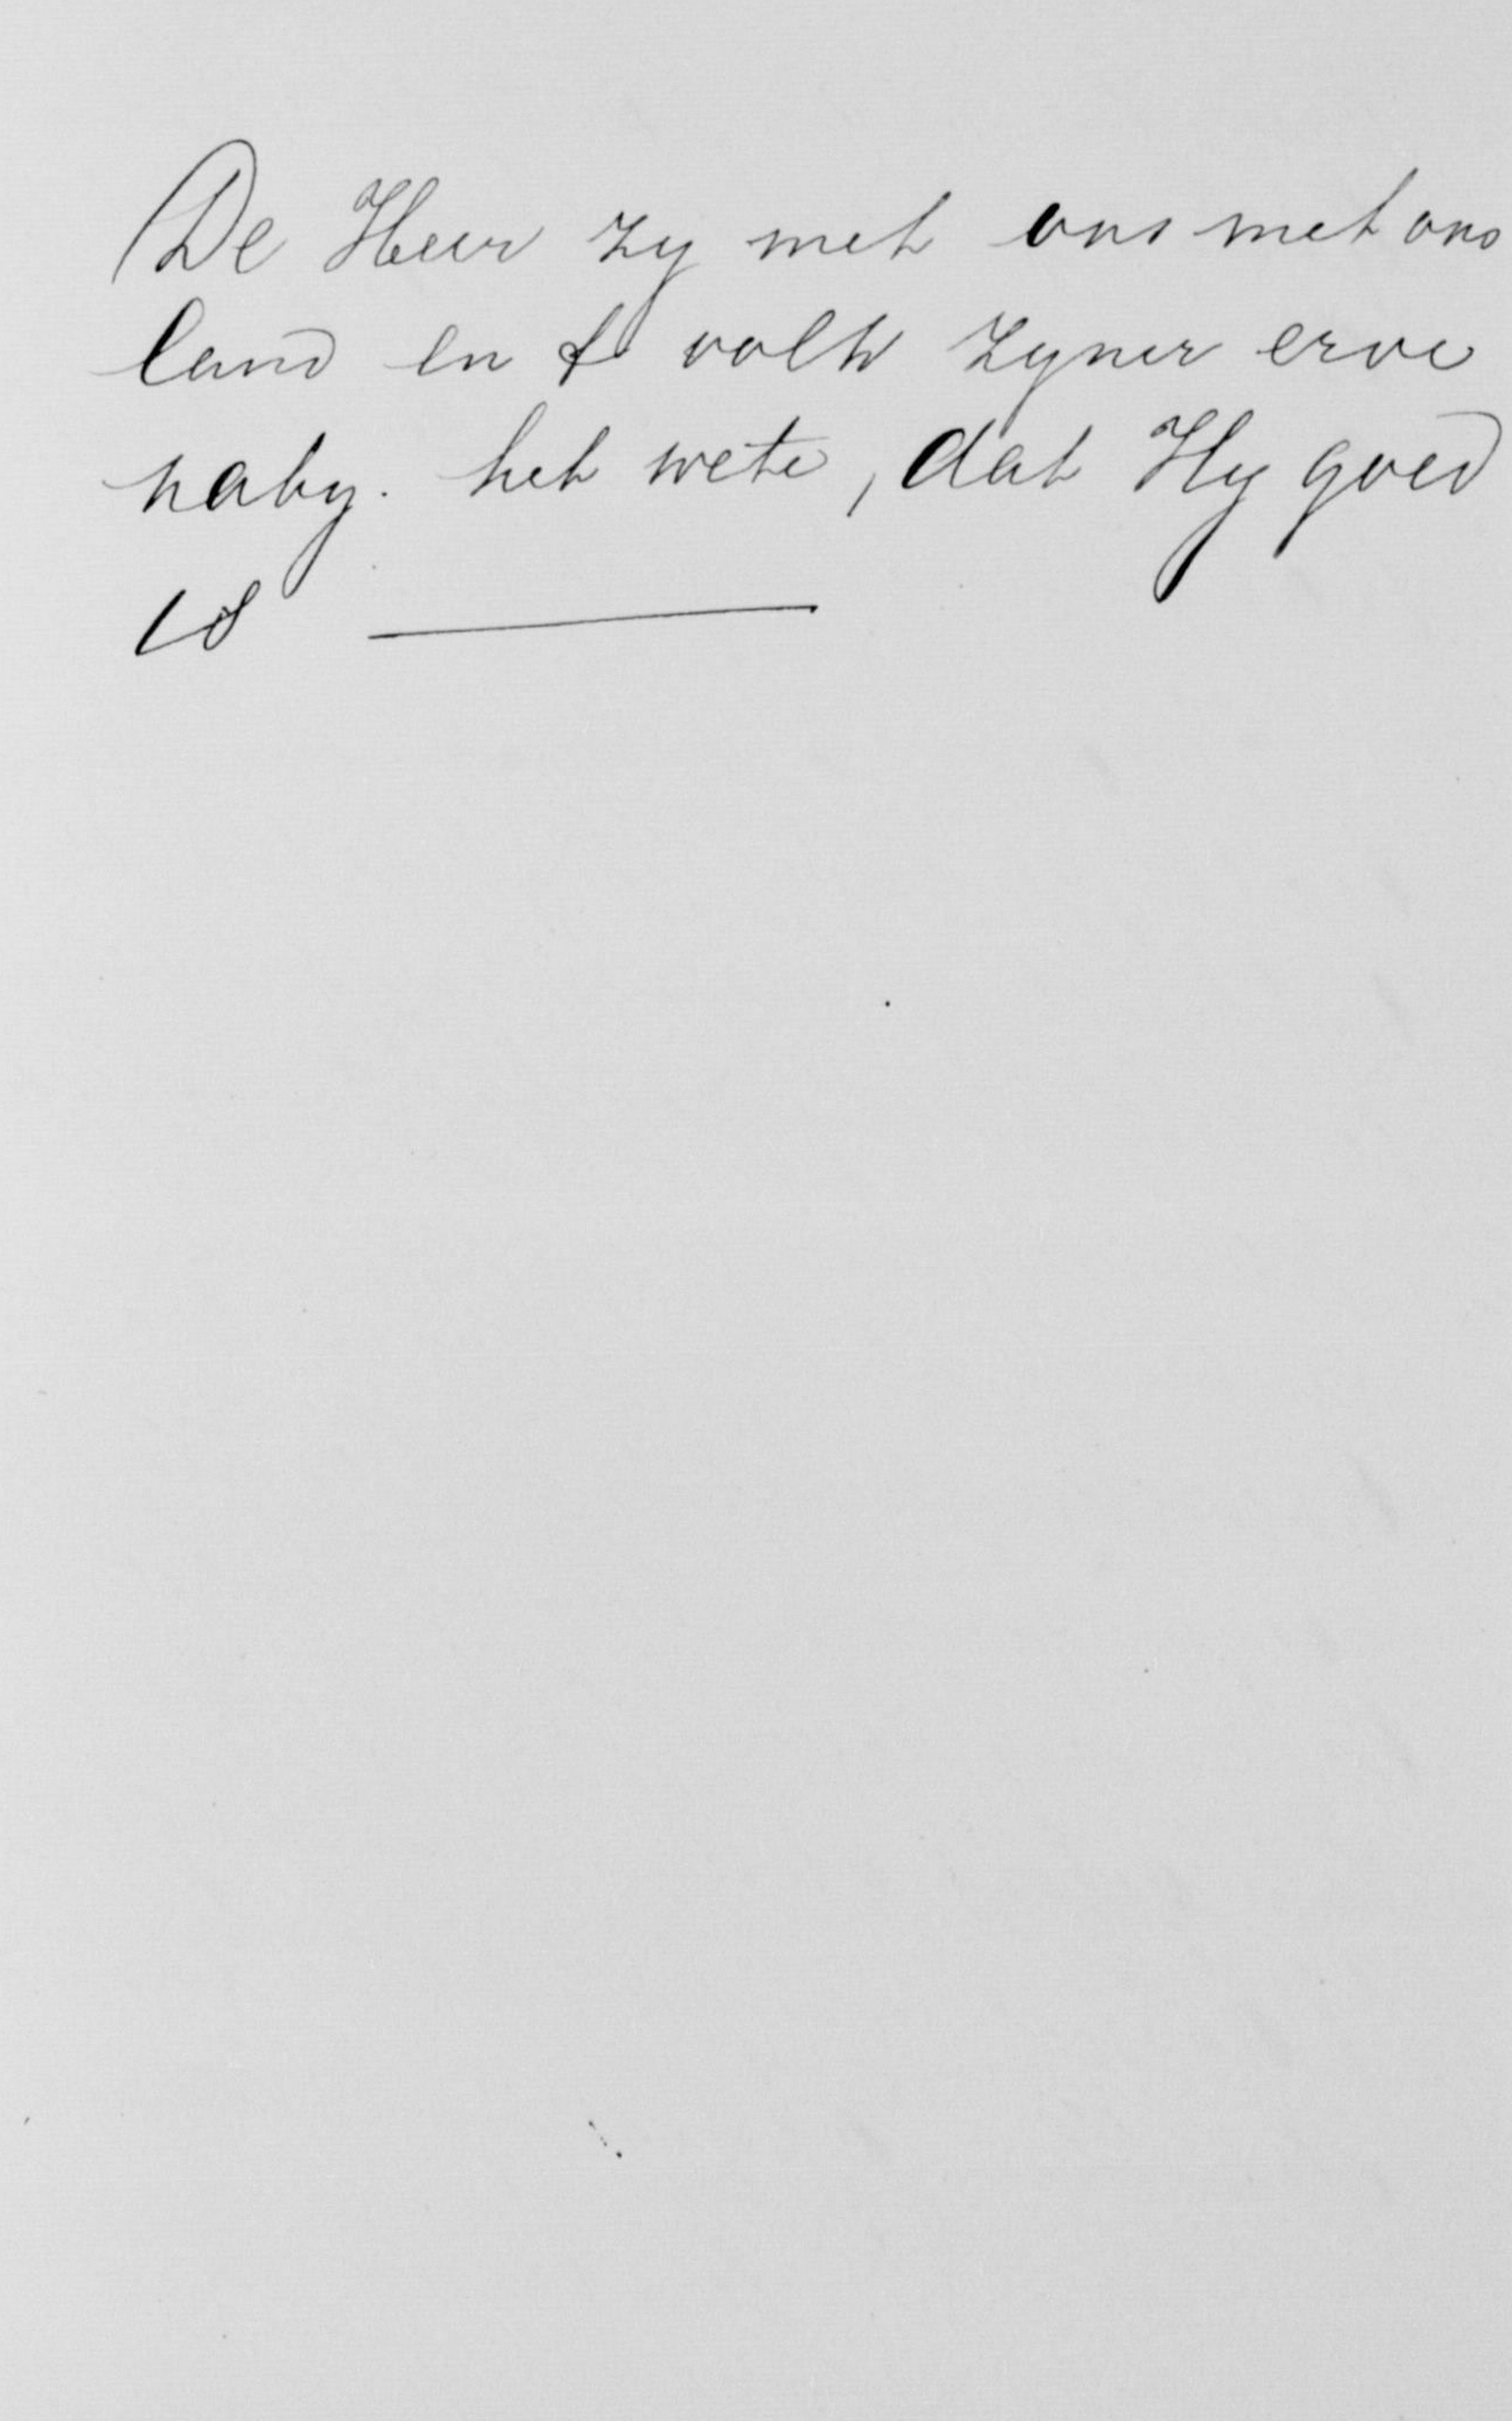 De Heer zy met ons met ons
land en t volk zyner erve
naby. het wete, dat Hy goed
is